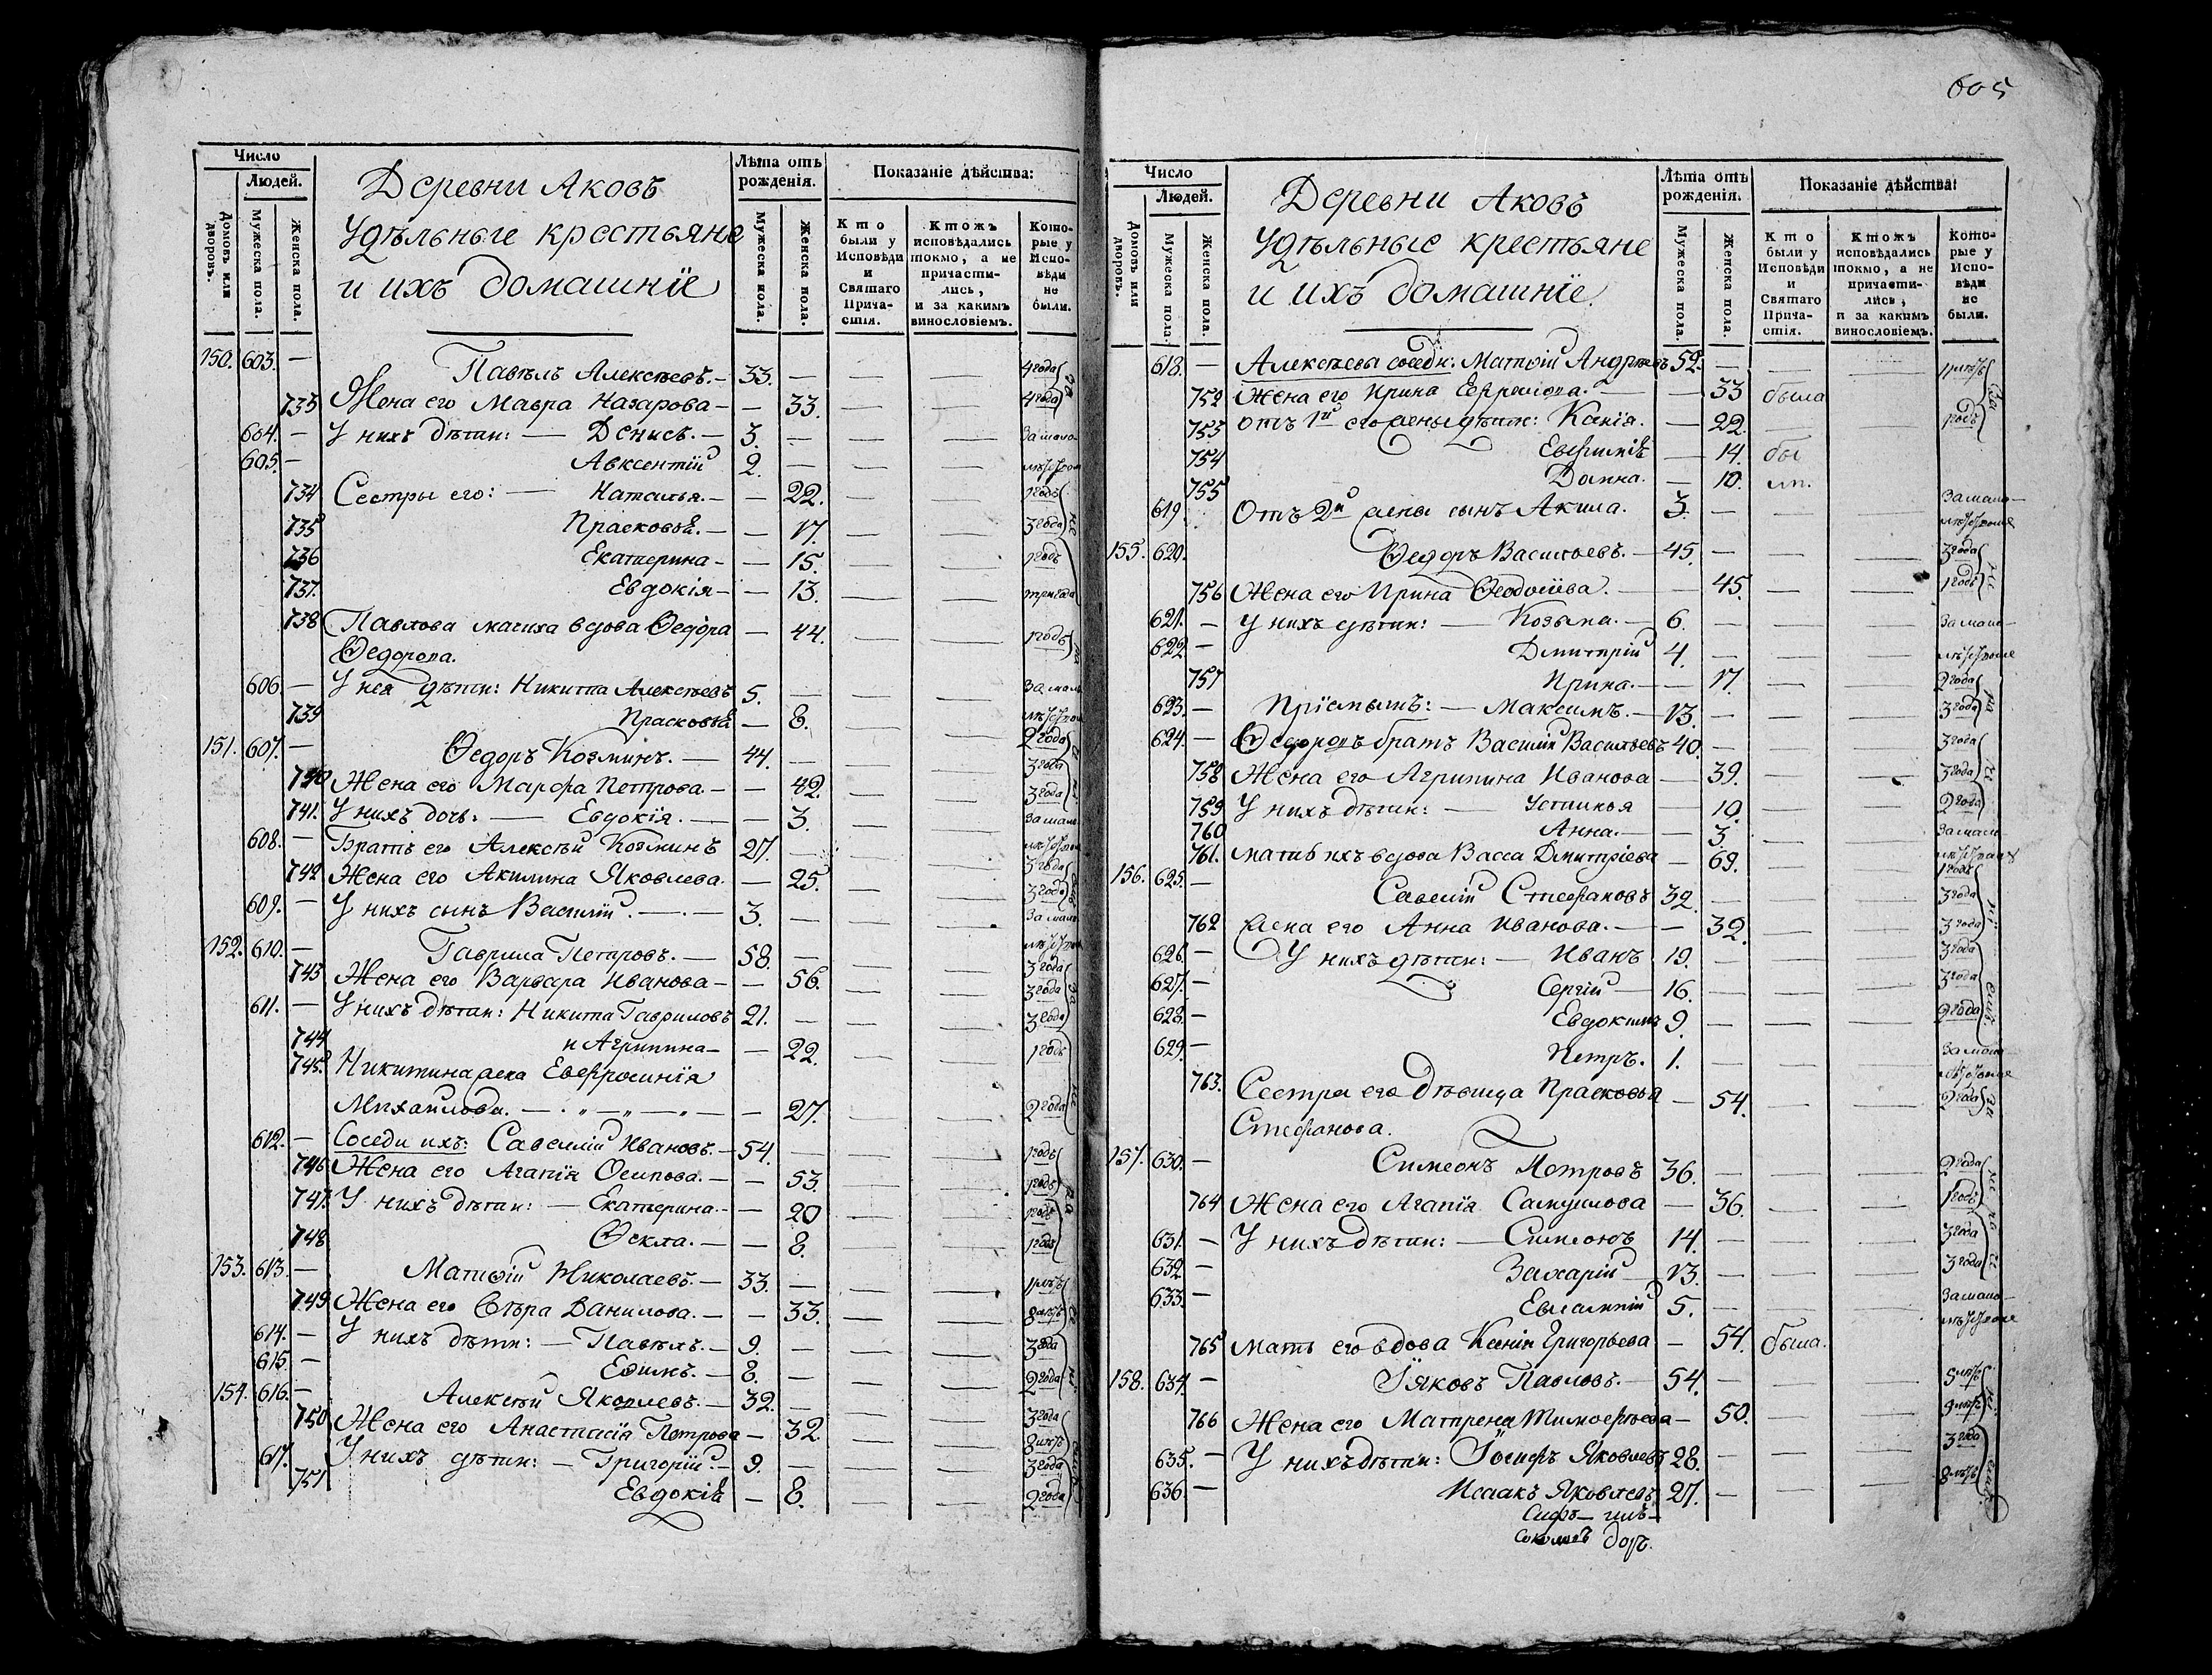 605
Число
Людей.
Домовъ или дворовъ.
Мужеска пола.
Женска пола.
Деревни Аковъ
Удѣльные крестьяне
и ихъ домашнїе
Лѣта отъ рожденія.
Мужеска пола.
Женска пола.
Показаніе дѣйства:
Кто были у Исповѣди и Святаго Причастія.
Ктожъ исповѣдались токмо, а не причастились, и за какимъ винословіемъ.
Которые у Исповѣди не были.
150. 603. — Павелъ Алексѣевъ. — 33. — — — 4 года
733 Жена его Мавра Назарова — — 33. — — 4 года
604. — У нихъ дѣти: — Денисъ. — 3. — — — За мало
605. — Авксентїй 2. — — —
734 Сестры его: — Наталья. — — 22. — — 1 годъ
735 Прасковья. — — 17. — — 3 года
736 Екатерина — — 15. — — 1 годъ
737. Евдокія — — 13. — — три года
738 Павлова мачиха вдова Ѳедора — 44. — — 1 годъ
Ѳедорова.
606. — У нея дѣти: Никита Алексѣевъ 5. — — — За мало
739 Прасковья — 8. — —
151. 607. — Ѳедоръ Козминъ. — 44. — — — 2 года
740 Жена его Марфа Петрова. — — 42. — — 3 года
741. У нихъ дочь: — Евдокія. — — 3. — — За мало
608. — Братъ его Алексѣй Козминъ 27. — — —
742 Жена его Акилина Яковлева. — 25. — — 3 года
609. — У нихъ сынъ Василій. — 3. — — — За мало
152. 610. — Гаврила Петровъ. — 58. — — —
743 Жена его Варвара Иванова — — 56. — — 3 года
611. — У нихъ дѣти: Никита Гавриловъ 21. — — — 3 года
744 и Агрипина — — 22. — — 1 годъ
745. Никитина жена Евфросинїя
Михайлова. — — 27. — — 2 года
612. — Соседи ихъ: Савелїй Ивановъ. — 54. — — — 1 годъ
746 Жена его Агапїя Осипова. — — 53. — — 1 годъ
747. У нихъ дѣти: — Екатерина. — — 20 — — 1 годъ
748 Ѳекла. — — 8. — — 1 годъ
153. 613. — Матѳїй Николаевъ. — 33. — — —
749 Жена его Вѣра Данилова. — — 33. — —
614. — У нихъ дѣти: — Павелъ. — 9. — — — 3 года
615 — Ефимъ. — 8. — — — 2 года
154. 616. — Алексѣй Яковлевъ. — 32. — — — 3 года
750 Жена его Анастасїя Петрова — 32. — —
617. У нихъ дѣти: — Григорїй — 9. — — — 3 года
751 Евдокїя — 8. — — 2 года
Число
Людей.
Домовъ или дворовъ.
Мужеска пола.
Женска пола.
Деревни Аковъ
Удѣльные крестьяне
и ихъ домашнїе.
Лѣта отъ рожденія.
Мужеска пола.
Женска пола.
Показаніе дѣйства:
Кто были у Исповѣди и Святаго Причастія.
Ктожъ исповѣдались токмо, а не причастились, и за какимъ винословіемъ.
Которые у Исповѣди не были.
618. — Алексѣевы соседи: Матѳїй Андреевъ 52. — — —
752 Жена его Ирина — 33 была
753 отъ 1й его жены дѣти: — 22. — — 1 годъ
754 — 14. бы
755 Домна. — 10. ли.
619 Отъ 2й жены сынъ Акила. 3. — — — За мало
155. 620. Ѳедоръ Васильевъ. — 45. — — — 3 года
756 Жена его Ирина Ѳеодосїева. — — 45. — — 1 годъ
621. — У нихъ дѣти: — Козьма. — 6. — — — За мало
622. — Дмитрїй 4. — — —
757 Ирина. — — 17. — — 2 года
623. — Прїемышъ: — Максимъ. — 13. — — — 3 года
624. — Ѳедоровъ братъ Василїй Васильевъ 40. — — — 3 года
758 Жена его Агрипина Иванова — 39. — — 3 года
759 У нихъ дѣти: — Устинья — 10. — — 2 года
760 Анна. — — 3. — — За мало
761. мать ихъ вдова Васса Дмитрїева — 69. — — 1 годъ
156. 625. — Савелїй Стефановъ 32. — — — 3 года
762 Жена его Анна Иванова. — — 32. — — 3 года
626. — У нихъ дѣти: — Иванъ 19. — — — 3 года
627. — Сергїй — 16. — — — 3 года
628. — Евдокимъ 9. — — — 2 года
629. — Петръ. 1. — — — За мало
763. Сестра его дѣвица Прасковья — 54. — — 2 года
Стефанова.
157. 630. — Симеонъ Петровъ 36. — — — 2 года
764 Жена его Агапїя Самуилова — 36. — — 1 годъ
631. — У нихъ дѣти: — Симеонъ 14. — — — 3 года
632 — Захарїй — 13. — — — 3 года
633. — Евлампїй 5. — — — За мало
765 мать его вдова Ксенїя Григорьева — 54. была.
158. 634. — Їяковъ Павловъ. — 54. — — —
766 Жена его Матрена Тимоѳеева — 50. — —
635. — У нихъ дѣти: Їосифъ Яковлевъ 28. — — — 3 года
636. — Исаакъ Яковлевъ 27. — — —